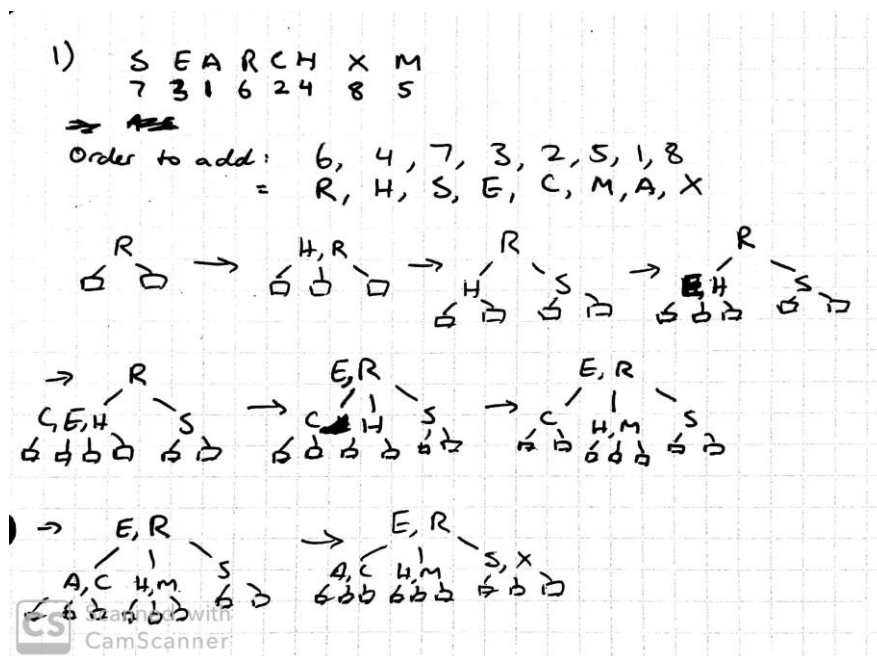 1) S E A R C H X M
7 3 1 6 2 4 8 5
Order to add: 6, 4, 7, 3, 2, 5, 1, 8
= R, H, S, E, C, M, A, X
R → H, R → R → R
H S E, H S
→ R → E, R → E, R
C, E, H S C H S C H, M S
→ E, R → E, R
A, C H, M S A, C H, M S, X
CS Scanned with
CamScanner